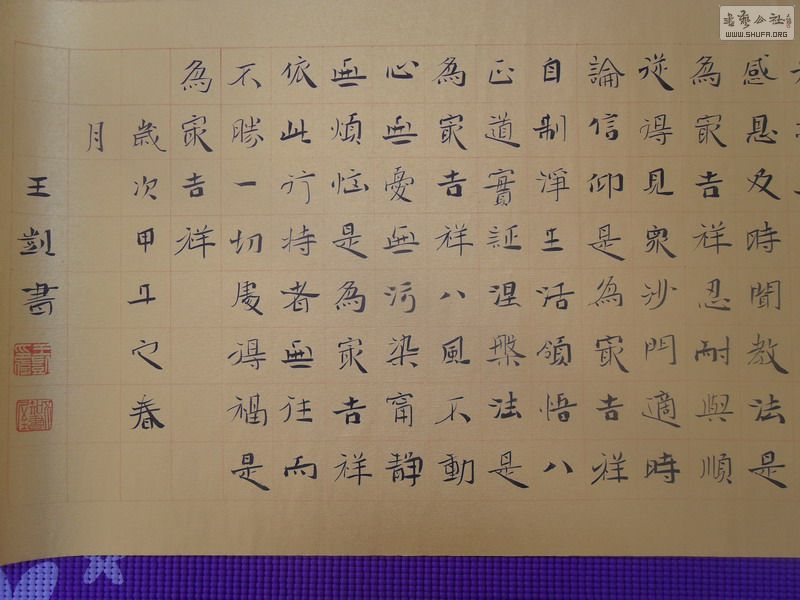 感恩及時聞教法是
為冣吉祥忍耐與順
從得見衆沙門適時
論信仰是為冣吉祥
自制淨生活領悟八
正道實証涅槃法是
為冣吉祥八風不動
心無憂無污染甯靜
無煩惱是為冣吉祥
依此行持者無往而
不勝一切處得福是
為冣吉祥
歲次甲午之春
月
王剴書
書藝公社
WWW.SHUFA.ORG